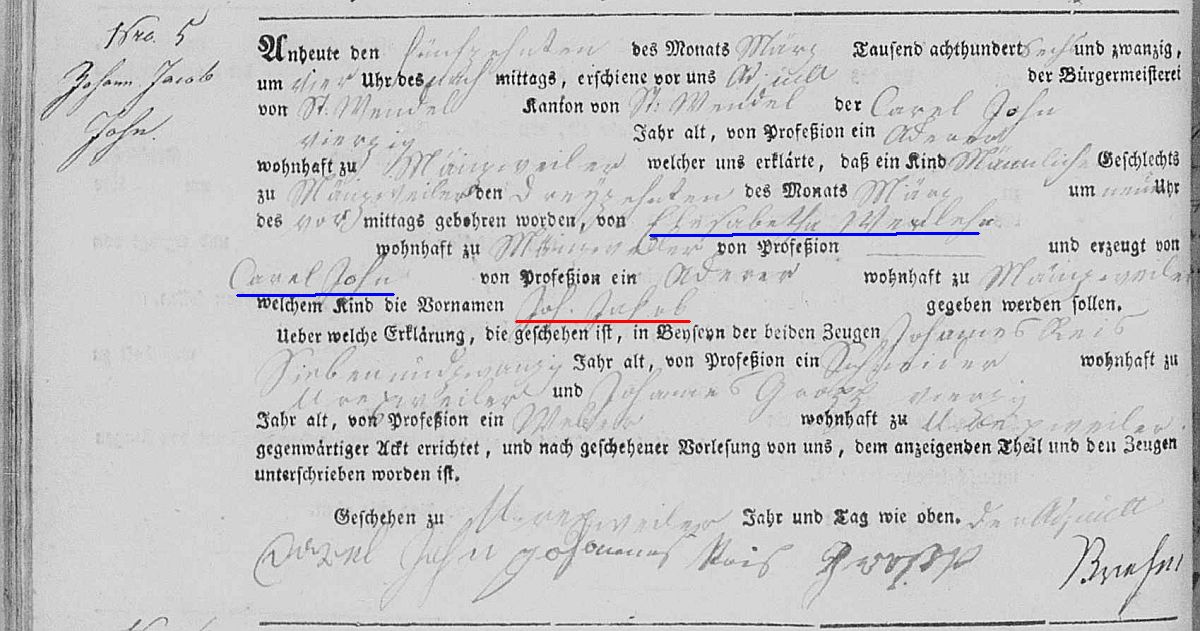 Nro. 5
Johann Jacob
John.
Anheute den fünfzehnten des Monats März Tausend achthundert sechs und zwanzig,
um vier Uhr des nach mittags, erschiene vor uns Adjunkt der Bürgermeisterei
von St. Wendel Kanton von St: Wendel der Carel John
vierzig Jahr alt, von Profeßion ein Ackerer
wohnhaft zu Mainzweiler welcher uns erklärte, daß ein Kind Männliche Geschlechts
zu Mainzweiler den dreyzehnten des Monats März um neun Uhr
des vor mittags gebohren worden, von Elisabetha
wohnhaft zu Mainzweiler von Profeßion und erzeugt von
Carel John von Profeßion ein Ackerer wohnhaft zu Mainzweiler
welchem Kind die Vornamen Joh. Jakob gegeben werden sollen.
Ueber welche Erklärung, die geschehen ist, in Beyseyn der beiden Zeugen Johannes Reis
Siebenundzwanzig Jahr alt, von Profeßion ein Schneider wohnhaft zu
Urexweiler und Johannes Groß vierzig
Jahr alt, von Profeßion ein Weber wohnhaft zu Urexweiler.
gegenwärtiger Ackt errichtet, und nach geschehener Vorlesung von uns, dem anzeigenden Theil und den Zeugen
unterschrieben worden ist.
Geschehen zu Urexweiler Jahr und Tag wie oben. der Adjunkt
Carel John Johannes Reis Groß